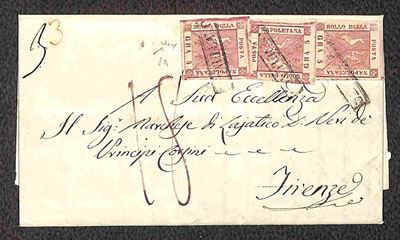 3
3
BOLLO DELLA
POSTA
NAPOLETANA
GRA 5
BOLLO DELLA
POSTA
NAPOLETANA
GRA 5
BOLLO DELLA
POSTA
NAPOLETANA
GRA 5
18
A Sua Eccellenza
Il Sigr Marchese di Lajatico D. Neri de'
Principi Corsini
Firenze